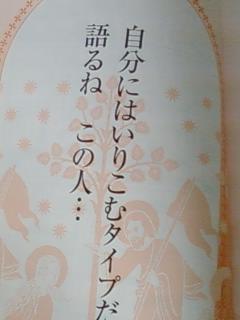 自分にはいりこむタイプだ
語るね　この人…